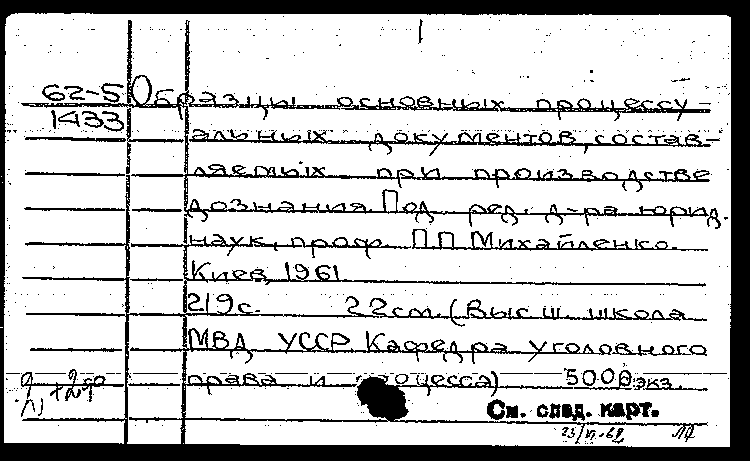 62-5 Образцы основных процессу-
1433 альных документов, состав-
ляемых при производстве
дознания. Под ред. д-ра юрид.
наук, проф. П.П. Михайленко.
Киев, 1961.
219с. 22см. (Высш. школа
МВД УССР. Кафедра уголовного
права и процесса) 5000экз.
См. след. карт.